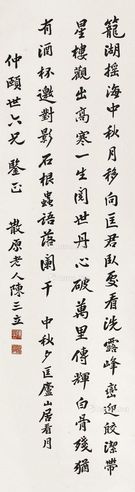 籠湖搖海中秋月移向匡君臥處看洗露峰巒迎皎潔帶
星樓觀出高寒一生閱世丹心破萬里傳輝白骨殘猶
有酒杯邀對影石根蟲語落闌干 中秋夕匡廬山居看月
仲頤世六兄 鑒正 散原老人陳三立